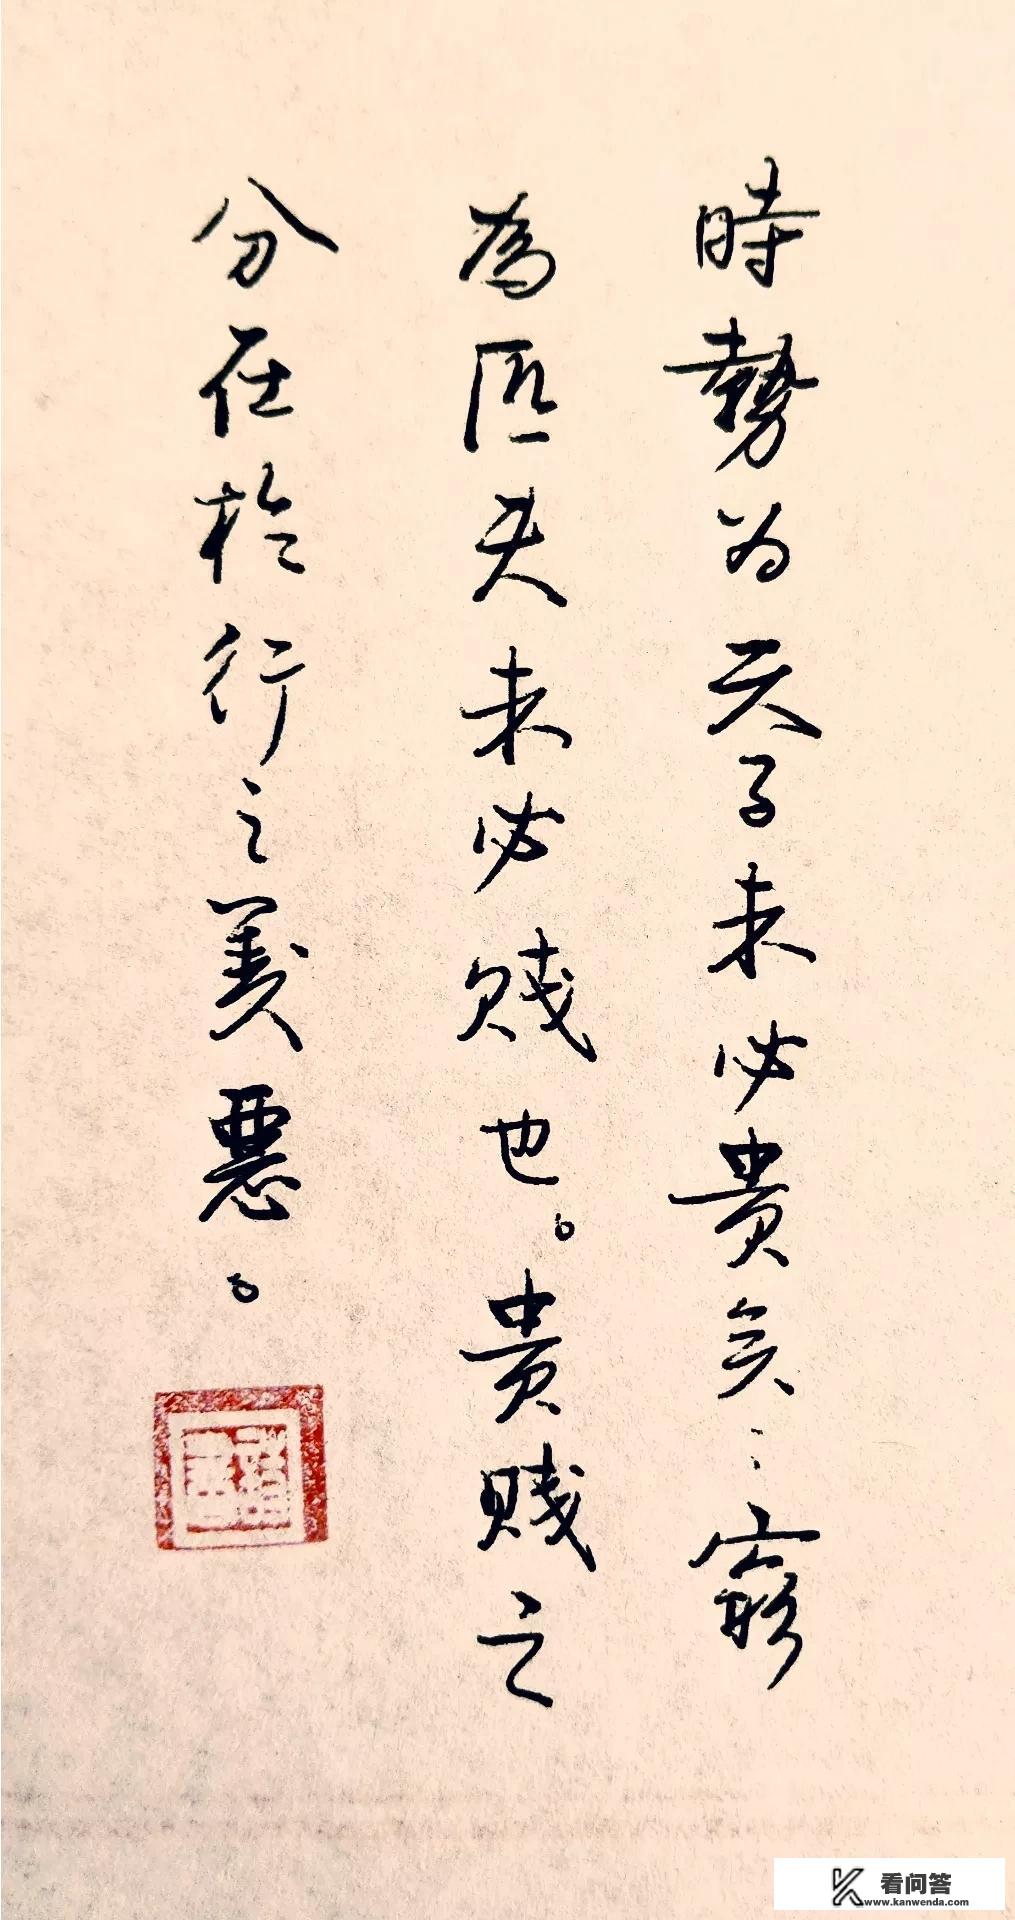 時勢为天子未必贵矣：窮
為匹夫未必贱也。贵贱之
分在於行之美惡。
看问答
www.kanwenda.com